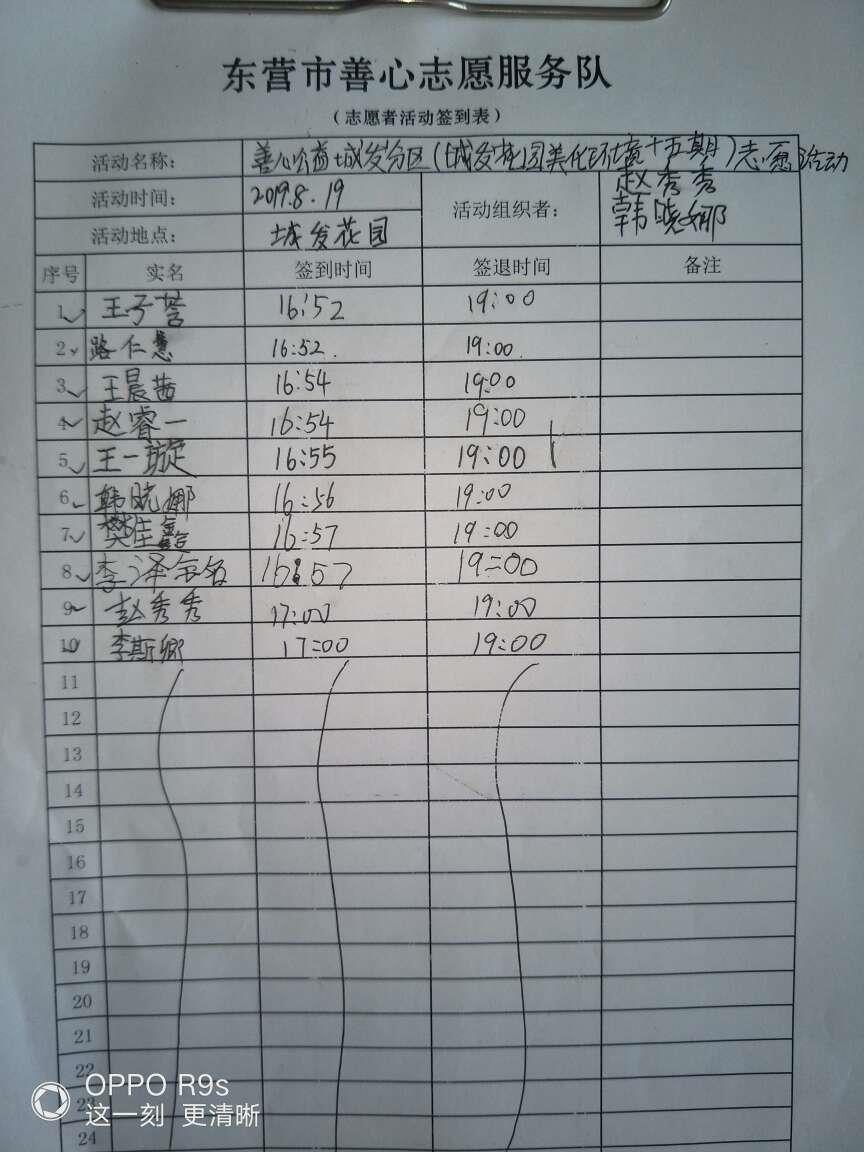 东营市善心志愿服务队
（志愿者活动签到表）
活动名称： 善心公益城发分区(城发花园美化环境十五期)志愿活动
活动时间： 2019.8.19 活动组织者： 赵秀秀 韩晓娜
活动地点： 城发花园
序号 实名 签到时间 签退时间 备注
1 王子誉 16:52 19:00
2 路仁慧 16:52 19:00
3 王晨茜 16:54 19:00
4 赵睿一 16:54 19:00
5 王一璇 16:55 19:00
6 韩晓娜 16:56 19:00
7 樊佳鑫 16:57 19:00
8 李泽 16:57 19:00
9 赵秀秀 17:00 19:00
10 李斯卿 17:00 19:00
11
12
13
14
15
16
17
18
19
20
21
22
23
24
OPPO R9s
这一刻 更清晰